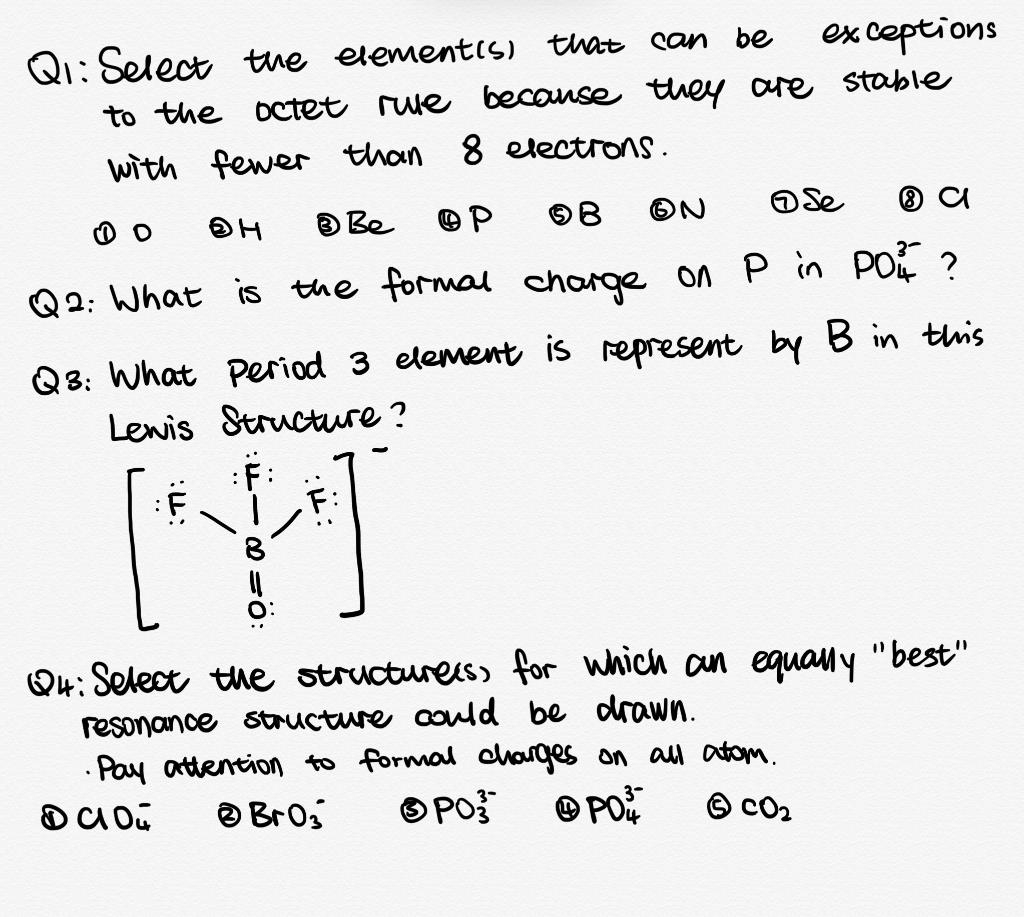 Q1: Select the element(s) that can be exceptions
to the octet rule because they are stable
with fewer than 8 electrons.
① O ② H ③ Be ④ P ⑤ B ⑥ N ⑦ Se ⑧ Cl
Q2: What is the formal charge on P in PO₄³⁻ ?
Q3: What Period 3 element is represent by B in this
Lewis Structure?
[ ]⁻
F F F
B
O
Q4: Select the structure(s) for which an equally "best"
resonance structure could be drawn.
· Pay attention to formal charges on all atom.
① ClO₄⁻ ② BrO₃⁻ ③ PO₃³⁻ ④ PO₄³⁻ ⑤ CO₂